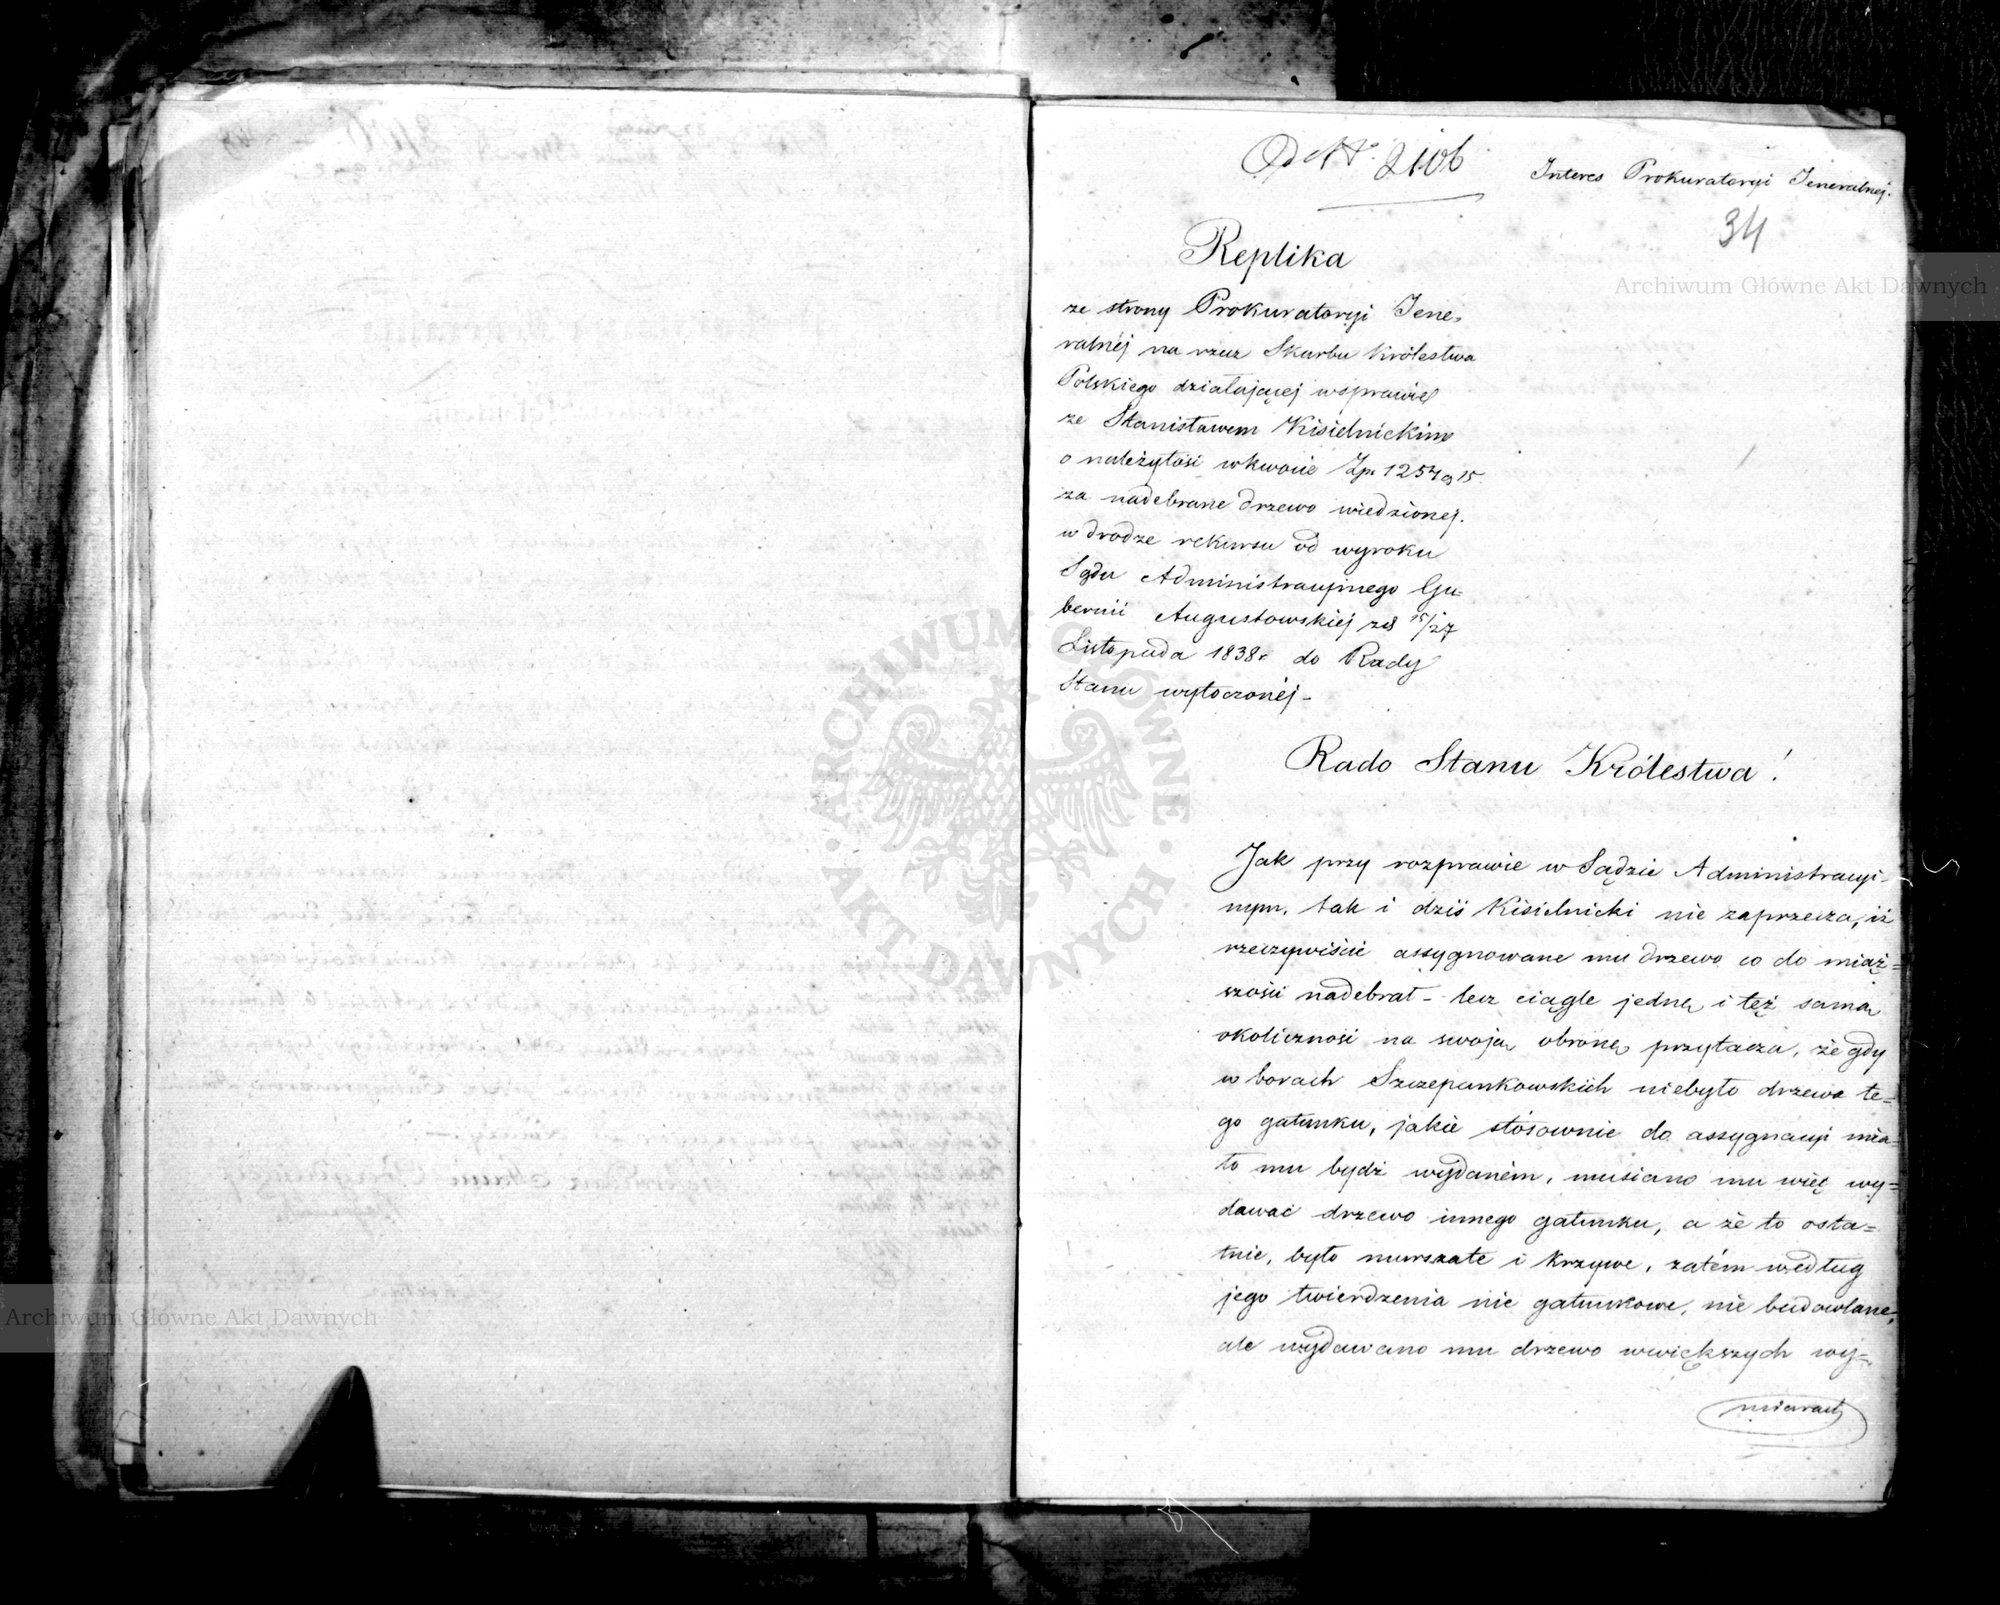 Od N. 2106
Interes Prokuratoryi Jeneralnej.
34
Replika
ze strony Prokuratoryi Jene=
ralnéj na rzecz Skarbu Królestwa
Polskiego działającej w sprawie
ze Stanisławem Kisielnickim
o należytość w kwocie Zp. 1254 g 15.
za nadebrane drzewo wiedzionej.
w drodze rekursu od wyroku
Sądu Administracyinego Gu=
bernii Augustowskiéj z d 15/27
Listopada 1838 r do Rady
Stanu wytoczonéj -
Rado Stanu Królestwa!
Jak przy rozprawie w Sądzie Administracyi-
nym, tak i dziś Kisielnicki nie zaprzecza, iż
rzeczywiście assygnowane mu drzewo co do miąż=
szości nadebrał - lecz ciągle jednę i też samą
okoliczność na swoją obronę przytacza, że gdy
w borach Szczepankowskich niebyło drzewa te=
go gatunku, jakie stósownie do assygnacyi mia-
ło mu bydź wydaném, musiano mu więc wy=
dawać drzewo innego gatunku, a że to osta=
tnie, było murszałe i krzywe, zatém według
jego twierdzenia nie gatunkowe, nie budowlane,
ale wydawano mu drzewo w większych wy=
miarach
Archiwum Główne Akt Dawnych
Archiwum Główne Akt Dawnych
ARCHIWUM GŁÓWNE · AKT DAWNYCH ·